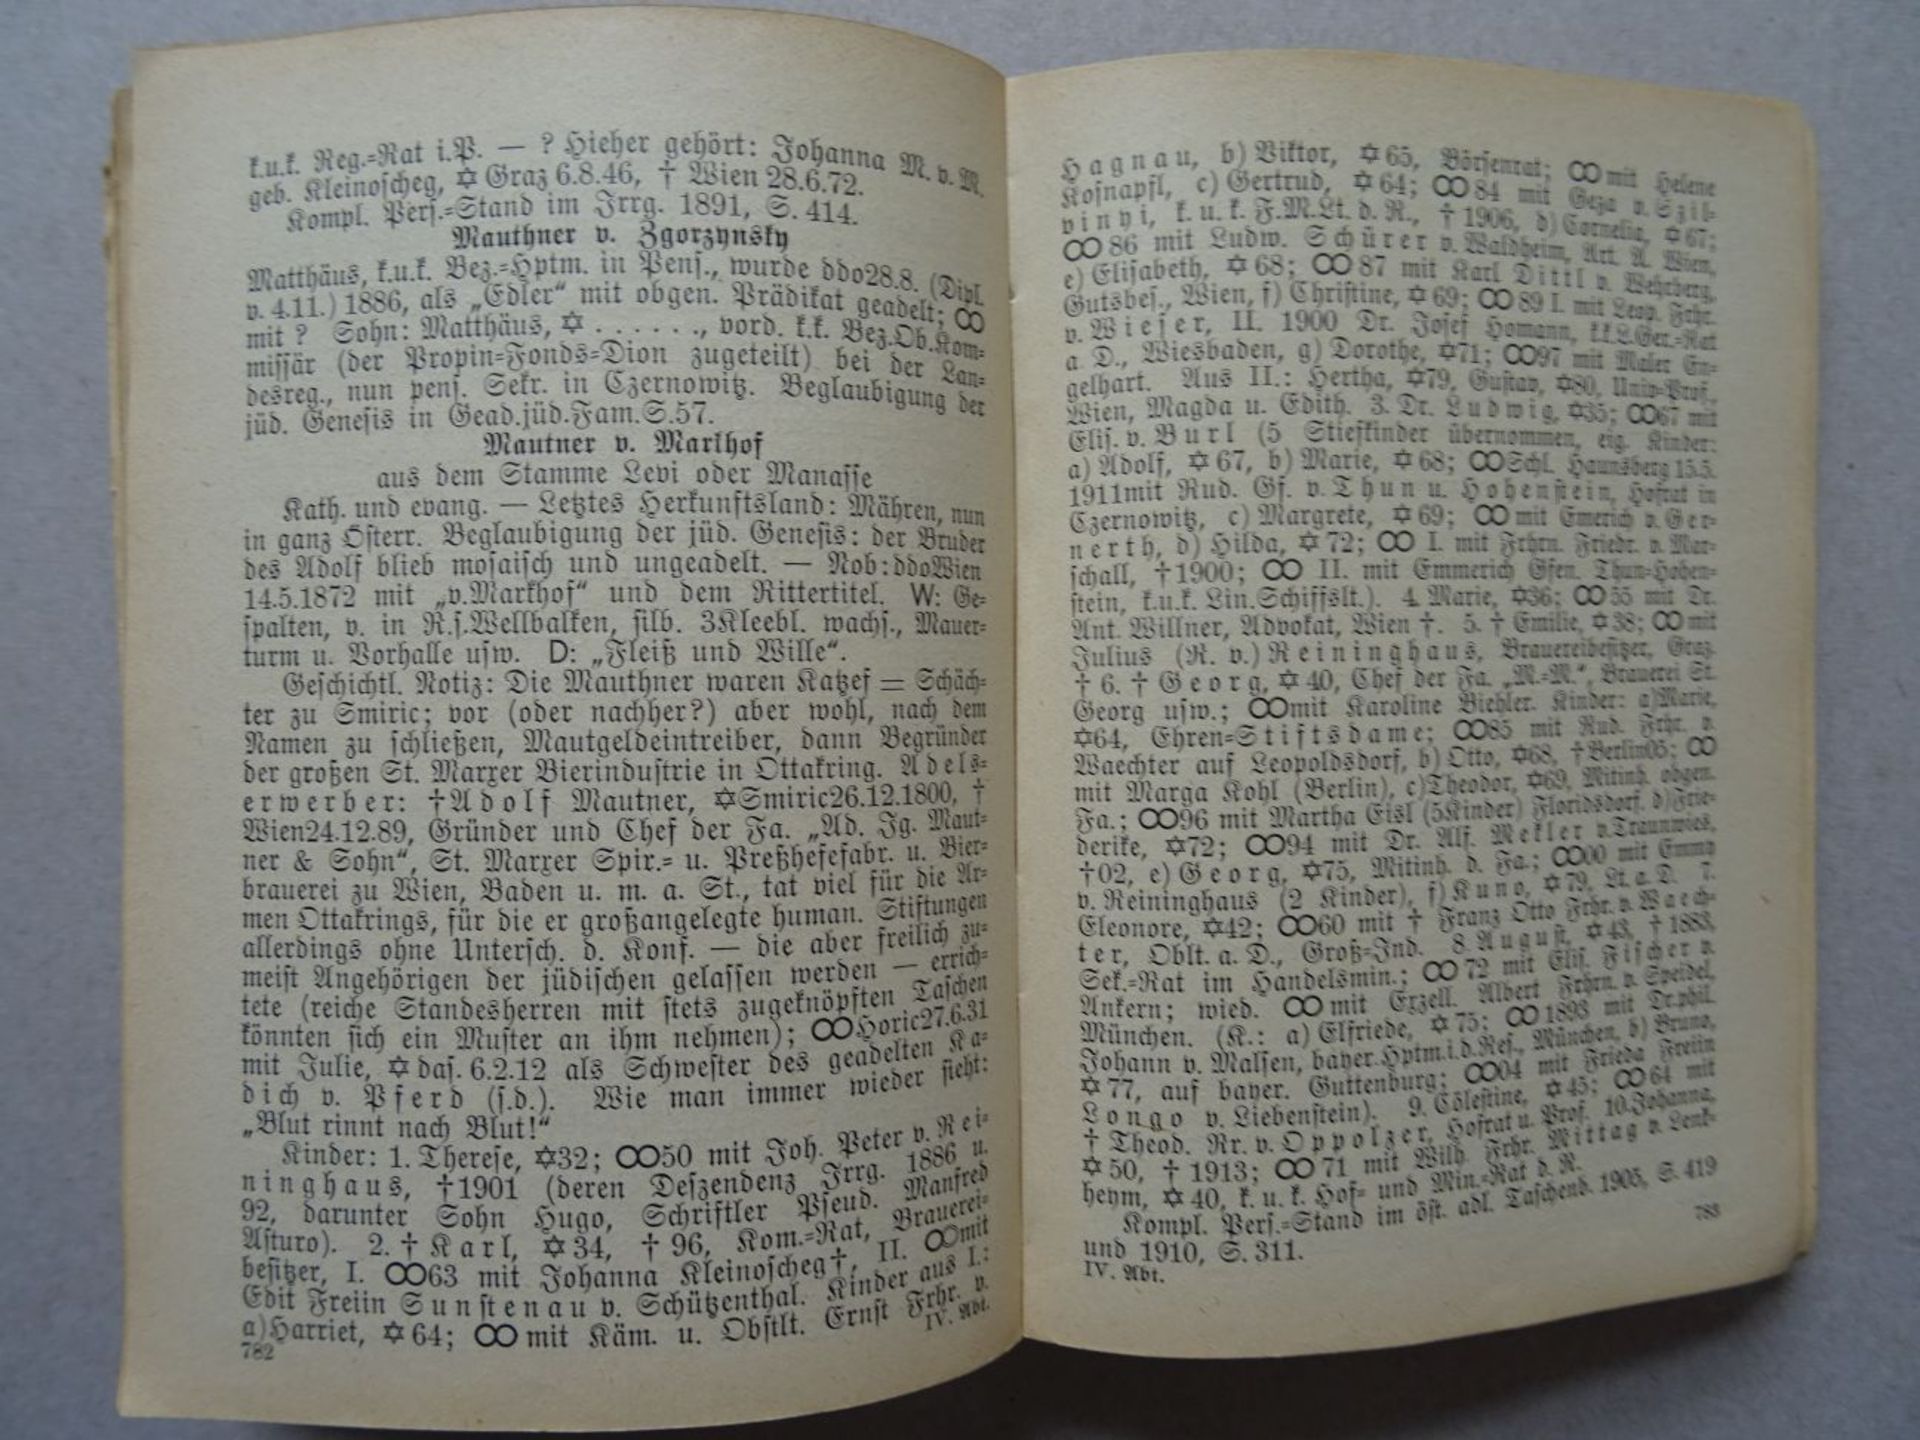 k.u.k. Reg.=Rat i.P. — ? Hieher gehört: Johanna M. v. M.
geb. Kleinoscheg, ✡ Graz 6.8.46, † Wien 28.6.72.
Kompl. Pers.=Stand im Irrg. 1891, S. 414.
Mauthner v. Zgorzynsky
Matthäus, k.u.k. Bez.=Hptm. in Pens., wurde ddo28.8. (Dipl.
v. 4.11.) 1886, als „Edler“ mit obgen. Prädikat geadelt; ꝏ
mit ? Sohn: Matthäus, ✡ . . . . . ., vord. k.k. Bez.Ob.Kom=
missär (der Propin=Fonds=Dion zugeteilt) bei der Lan=
desreg., nun pens. Sekr. in Czernowitz. Beglaubigung der
jüd. Genesis in Gead.jüd.Fam.S.57.
Mautner v. Markhof
aus dem Stamme Levi oder Manasse
Kath. und evang. — Letztes Herkunftsland: Mähren, nun
in ganz Österr. Beglaubigung der jüd. Genesis: der Bruder
des Adolf blieb mosaisch und ungeadelt. — Nob:ddoWien
14.5.1872 mit „v.Markhof“ und dem Rittertitel. W: Ge=
spalten, v. in R.s.Wellbalken, silb. 3Kleebl. wachs., Mauer=
turm u. Vorhalle usw. D: „Fleiß und Wille“.
Geschichtl. Notiz: Die Mauthner waren Katzef = Schäch=
ter zu Smiric; vor (oder nachher?) aber wohl, nach dem
Namen zu schließen, Mautgeldeintreiber, dann Begründer
der großen St. Marxer Bierindustrie in Ottakring. Adels=
erwerber: †Adolf Mautner, ✡Smiric26.12.1800, †
Wien24.12.89, Gründer und Chef der Fa. „Ad. Ig. Maut=
ner & Sohn“, St. Marxer Spir.= u. Preßhefefabr. u. Bier=
brauerei zu Wien, Baden u. m. a. St., tat viel für die Ar=
men Ottakrings, für die er großangelegte human. Stiftungen
allerdings ohne Untersch. d. Konf. — die aber freilich zu=
meist Angehörigen der jüdischen gelassen werden — errich=
tete (reiche Standesherren mit stets zugeknöpften Taschen
könnten sich ein Muster an ihm nehmen); ꝏHoric27.6.31
mit Julie, ✡ das. 6.2.12 als Schwester des geadelten Ka=
dich v. Pferd (s.d.). Wie man immer wieder sieht:
„Blut rinnt nach Blut!“
Kinder: 1. Therese, ✡32; ꝏ50 mit Joh. Peter v. Rei=
ninghaus, †1901 (deren Deszendenz Irrg. 1886 u.
92, darunter Sohn Hugo, Schriftler Pseud. Manfred
Asturo). 2. † Karl, ✡34, † 96, Kom.=Rat, Brauerei=
besitzer, I. ꝏ63 mit Johanna Kleinoscheg†, II. ꝏmit
Edit Freiin Sunstenau v. Schützenthal. Kinder aus I.:
a)Harriet, ✡64; ꝏ mit Käm. u. Obstlt. Ernst Frhr. v.
IV. Abt.
782
Hagnau, b) Viktor, ✡65, Börsenrat; ꝏ mit Helene
Kosnapfl, c) Gertrud, ✡64; ꝏ84 mit Geza v. Szil=
vinyi, k. u. k. F.M.Lt. d. R., † 1906, d) Cornelia, ✡67;
ꝏ86 mit Ludw. Schürer v. Waldheim, Art. A. Wien,
e) Elisabeth, ✡68; ꝏ87 mit Karl Dittl v. Wehrberg,
Gutsbes., Wien, f) Christine, ✡69; ꝏ89 I. mit Leop. Frhr.
v. Wieser, II. 1900 Dr. Josef Homann, k.k.L.Ger.=Rat
a. D., Wiesbaden, g) Dorothe, ✡71; ꝏ97 mit Maler En=
gelhart. Aus II.: Hertha, ✡79, Gustav, ✡80, Univ=Prof.,
Wien, Magda u. Edith. 3. Dr. Ludwig, ✡35; ꝏ67 mit
Elis. v. Burl (5 Stiefkinder übernommen, eig. Kinder:
a) Adolf, ✡67, b) Marie, ✡68; ꝏSchl. Haunsberg 15.5.
1911mit Rud. Gf. v. Thun u. Hohenstein, Hofrat in
Czernowitz, c) Margrete, ✡69; ꝏ mit Emerich v. Ger=
nerth, d) Hilda, ✡72; ꝏ I. mit Frhrn. Friedr. v. Mar=
schall, †1900; ꝏ II. mit Emmerich Gfen. Thun=Hohen=
stein, k.u.k. Lin.Schiffslt.). 4. Marie, ✡36; ꝏ55 mit Dr.
Ant. Willner, Advokat, Wien †. 5. † Emilie, ✡38; ꝏ mit
Julius (R. v.) Reininghaus, Brauereibesitzer, Graz
† 6. † Georg, ✡40, Chef der Fa. „M.=M.“, Brauerei St.
Georg usw.; ꝏmit Karoline Biehler. Kinder: a)Marie,
✡64, Ehren=Stiftsdame; ꝏ85 mit Rud. Frhr. v.
Waechter auf Leopoldsdorf, b) Otto, ✡68, †Berlin05; ꝏ
mit Marga Kohl (Berlin), c)Theodor, ✡69, Mitinh. obgen.
Fa.; ꝏ96 mit Martha Eisl (5Kinder) Floridsdorf. d)Frie=
derike, ✡72; ꝏ94 mit Dr. Alf. Mekler v.Traunwies,
†02, e) Georg, ✡75, Mitinh. d. Fa.; ꝏ00 mit Emmy
v. Reininghaus (2 Kinder), f) Kuno, ✡79, Lt. a. D. 7.
Eleonore, ✡42; ꝏ60 mit † Franz Otto Frhr. v. Waech=
ter, Oblt. a. D., Groß=Ind. 8. August, ✡43, † 1883,
Sek.=Rat im Handelsmin.; ꝏ72 mit Elis. Fischer v.
Ankern; wied. ꝏ mit Exzell. Albert Frhrn. v. Speidel,
München. (K.: a) Elfriede, ✡75; ꝏ1893 mit Dr.phil.
Johann v. Malsen, bayer.Hptm.i.d.Res., München, b) Bruno,
✡77, auf bayer. Guttenburg; ꝏ04 mit Frieda Freiin
Longo v. Liebenstein). 9. Cölestine, ✡45; ꝏ64 mit
† Theod. Rr. v. Oppolzer, Hofrat u. Prof. 10.Johanna,
✡50, † 1913; ꝏ71 mit Wilh. Frhr. Mittag v. Lenk=
heym, ✡40, k. u. k. Hof= und Min.=Rat d. R.
Kompl. Pers.=Stand im öst. adl. Taschenb. 1905, S. 419
und 1910, S. 311.
783
IV. Abt.